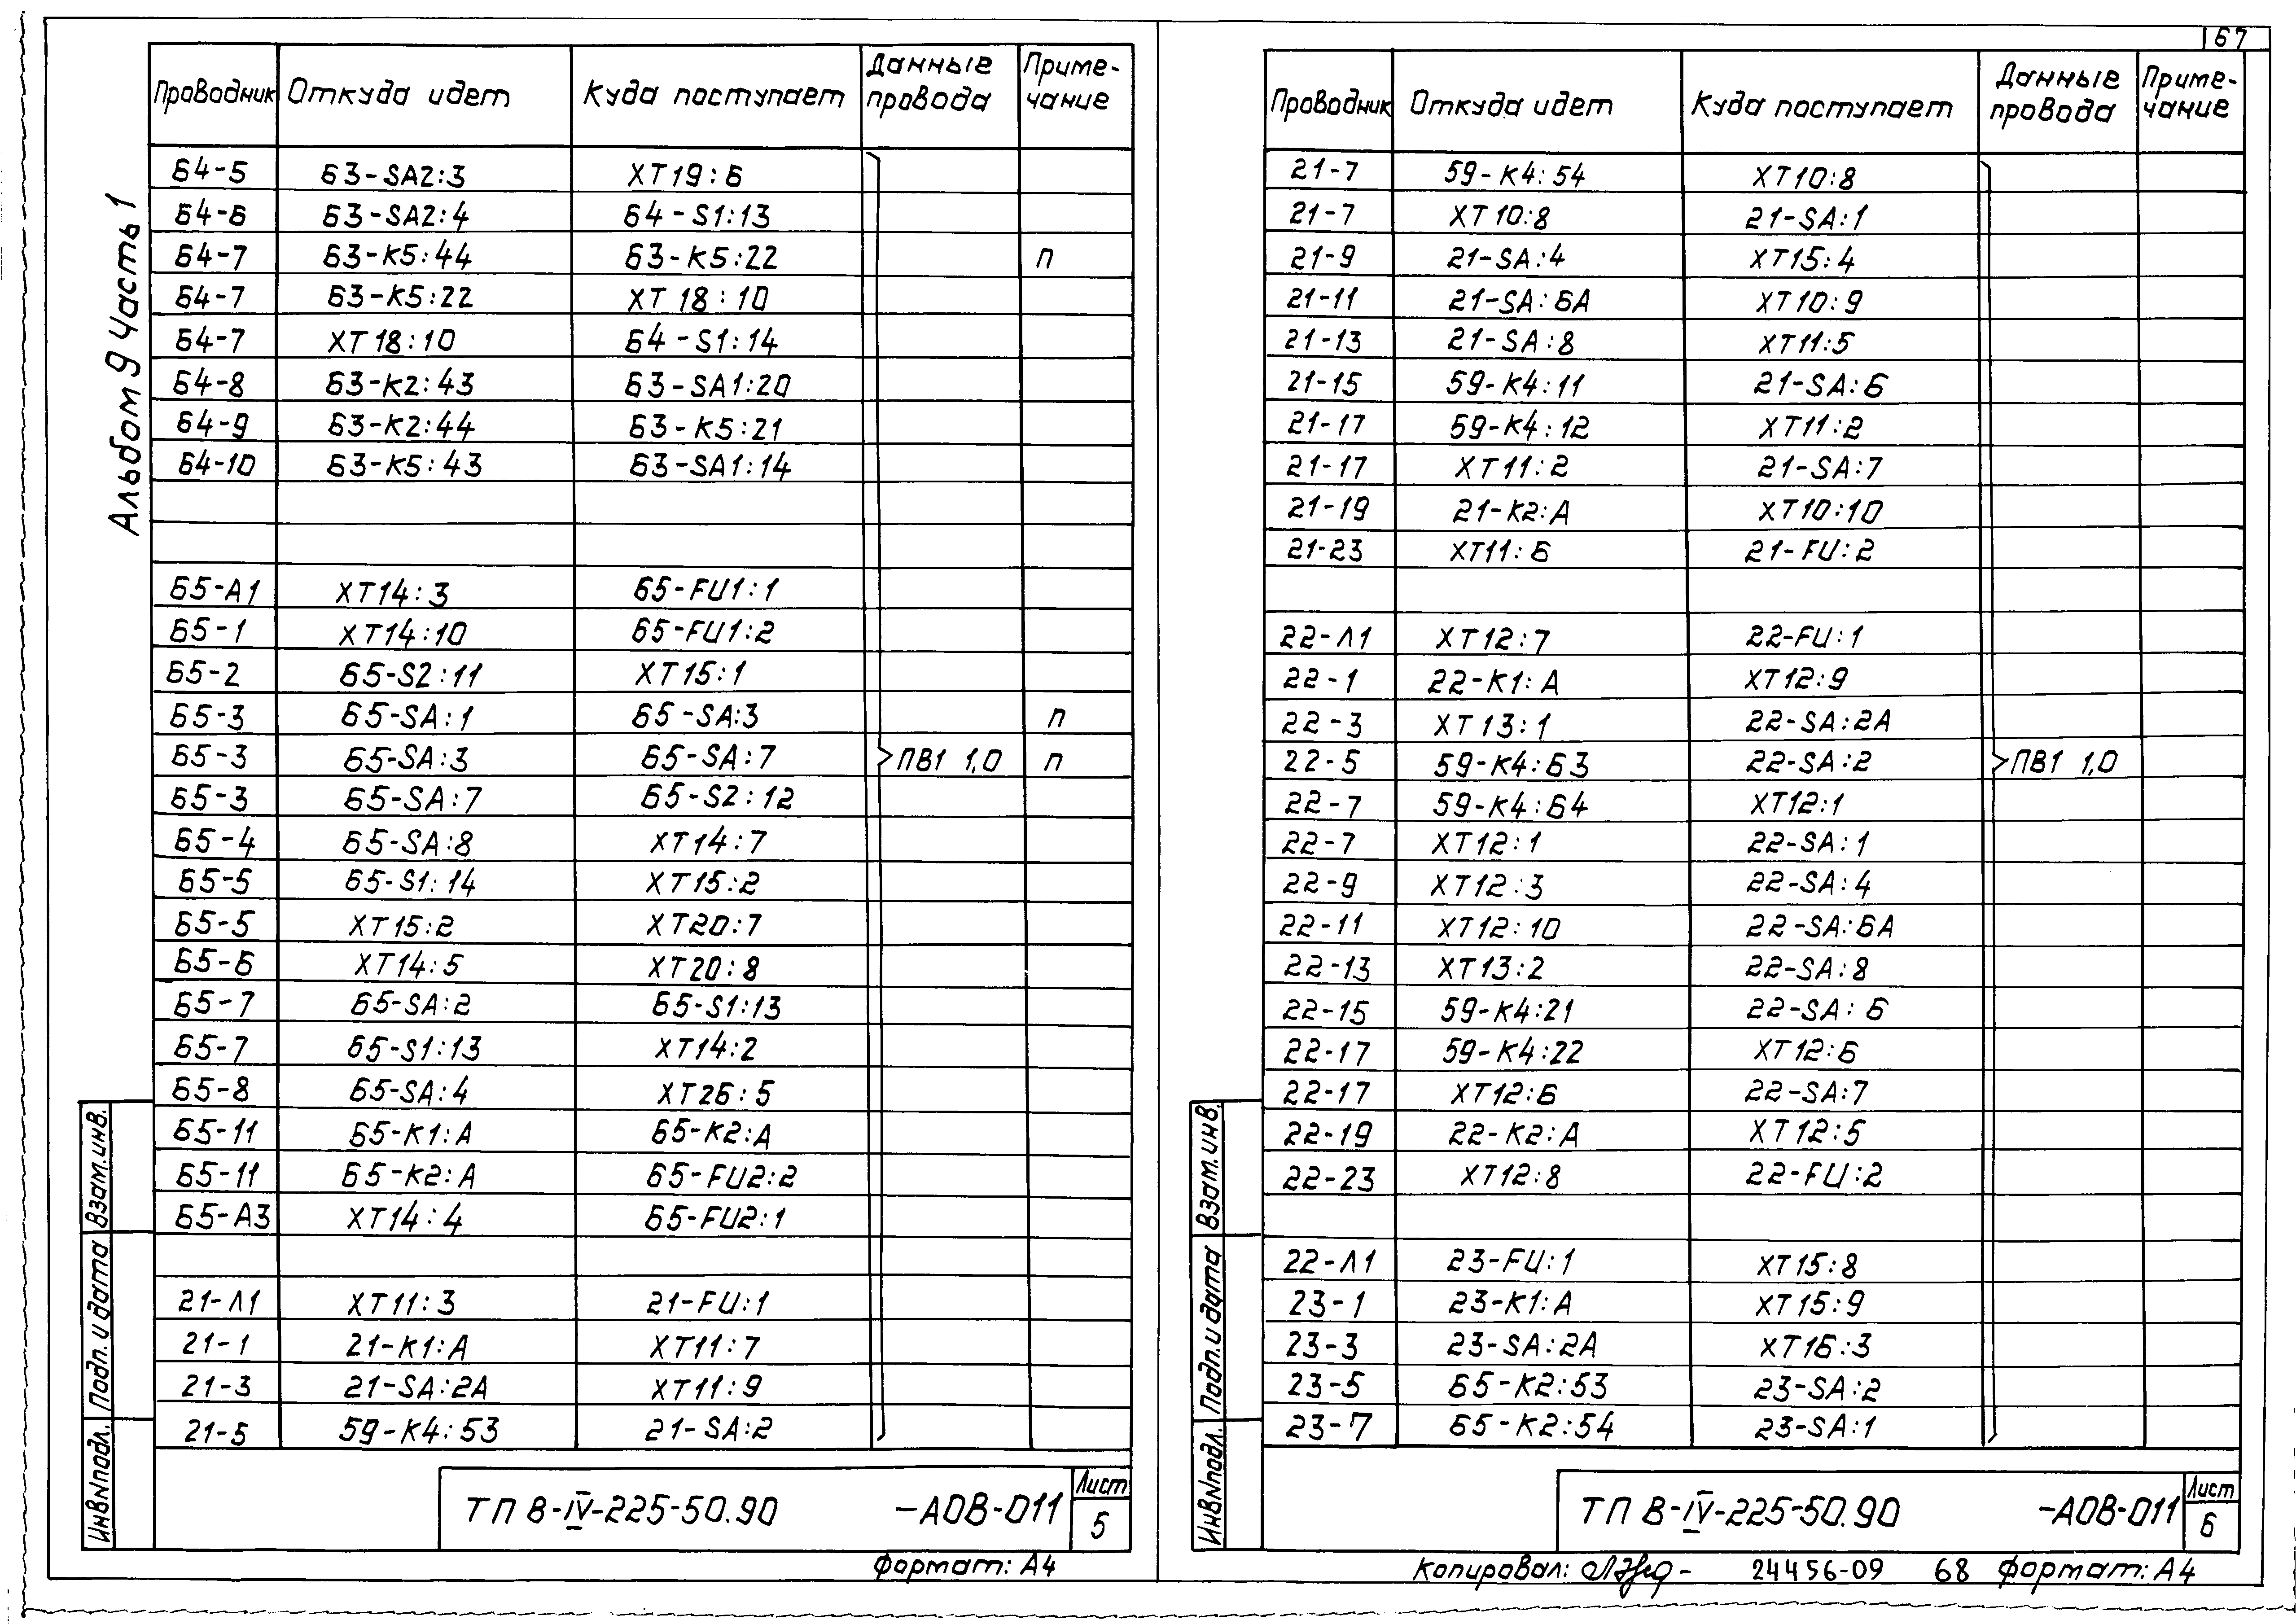 Альбом 9 Часть 1
Проводник Откуда идет Куда поступает Данные провода Приме-чание
64-5 63-SA2:3 XT19:6
64-6 63-SA2:4 64-S1:13
64-7 63-K5:44 63-K5:22 п
64-7 63-K5:22 XT18:10
64-7 XT18:10 64-S1:14
64-8 63-K2:43 63-SA1:20
64-9 63-K2:44 63-K5:21
64-10 63-K5:43 63-SA1:14
65-А1 XT14:3 65-FU1:1
65-1 XT14:10 65-FU1:2
65-2 65-S2:11 XT15:1
65-3 65-SA:1 65-SA:3 п
65-3 65-SA:3 65-SA:7 ПВ1 1,0 п
65-3 65-SA:7 65-S2:12
65-4 65-SA:8 XT14:7
65-5 65-S1:14 XT15:2
65-5 XT15:2 XT20:7
65-6 XT14:5 XT20:8
65-7 65-SA:2 65-S1:13
65-7 65-S1:13 XT14:2
65-8 65-SA:4 XT26:5
65-11 65-K1:A 65-K2:A
65-11 65-K2:A 65-FU2:2
65-А3 XT14:4 65-FU2:1
21-Л1 XT11:3 21-FU:1
21-1 21-K1:A XT11:7
21-3 21-SA:2A XT11:9
21-5 59-K4:53 21-SA:2
Взам.инв.
Подп. и дата
Инв N подл.
ТП В-IV-225-50.90 -АОВ-011
Лист
5
Формат: А4
67
Проводник Откуда идет Куда поступает Данные провода Приме-чание
21-7 59-K4:54 XT10:8
21-7 XT10:8 21-SA:1
21-9 21-SA:4 XT15:4
21-11 21-SA:6A XT10:9
21-13 21-SA:8 XT11:5
21-15 59-K4:11 21-SA:6
21-17 59-K4:12 XT11:2
21-17 XT11:2 21-SA:7
21-19 21-K2:A XT10:10
21-23 XT11:6 21-FU:2
22-Л1 XT12:7 22-FU:1
22-1 22-K1:A XT12:9
22-3 XT13:1 22-SA:2A
22-5 59-K4:63 22-SA:2 ПВ1 1,0
22-7 59-K4:64 XT12:1
22-7 XT12:1 22-SA:1
22-9 XT12:3 22-SA:4
22-11 XT12:10 22-SA:6A
22-13 XT13:2 22-SA:8
22-15 59-K4:21 22-SA:6
22-17 59-K4:22 XT12:6
22-17 XT12:6 22-SA:7
22-19 22-K2:A XT12:5
22-23 XT12:8 22-FU:2
22-Л1 23-FU:1 XT15:8
23-1 23-K1:A XT15:9
23-3 23-SA:2A XT16:3
23-5 65-K2:53 23-SA:2
23-7 65-K2:54 23-SA:1
Взам.инв.
Подп. и дата
Инв N подл.
ТП В-IV-225-50.90 -АОВ-011
Лист
6
Копировал: 24456-09 68 Формат: А4